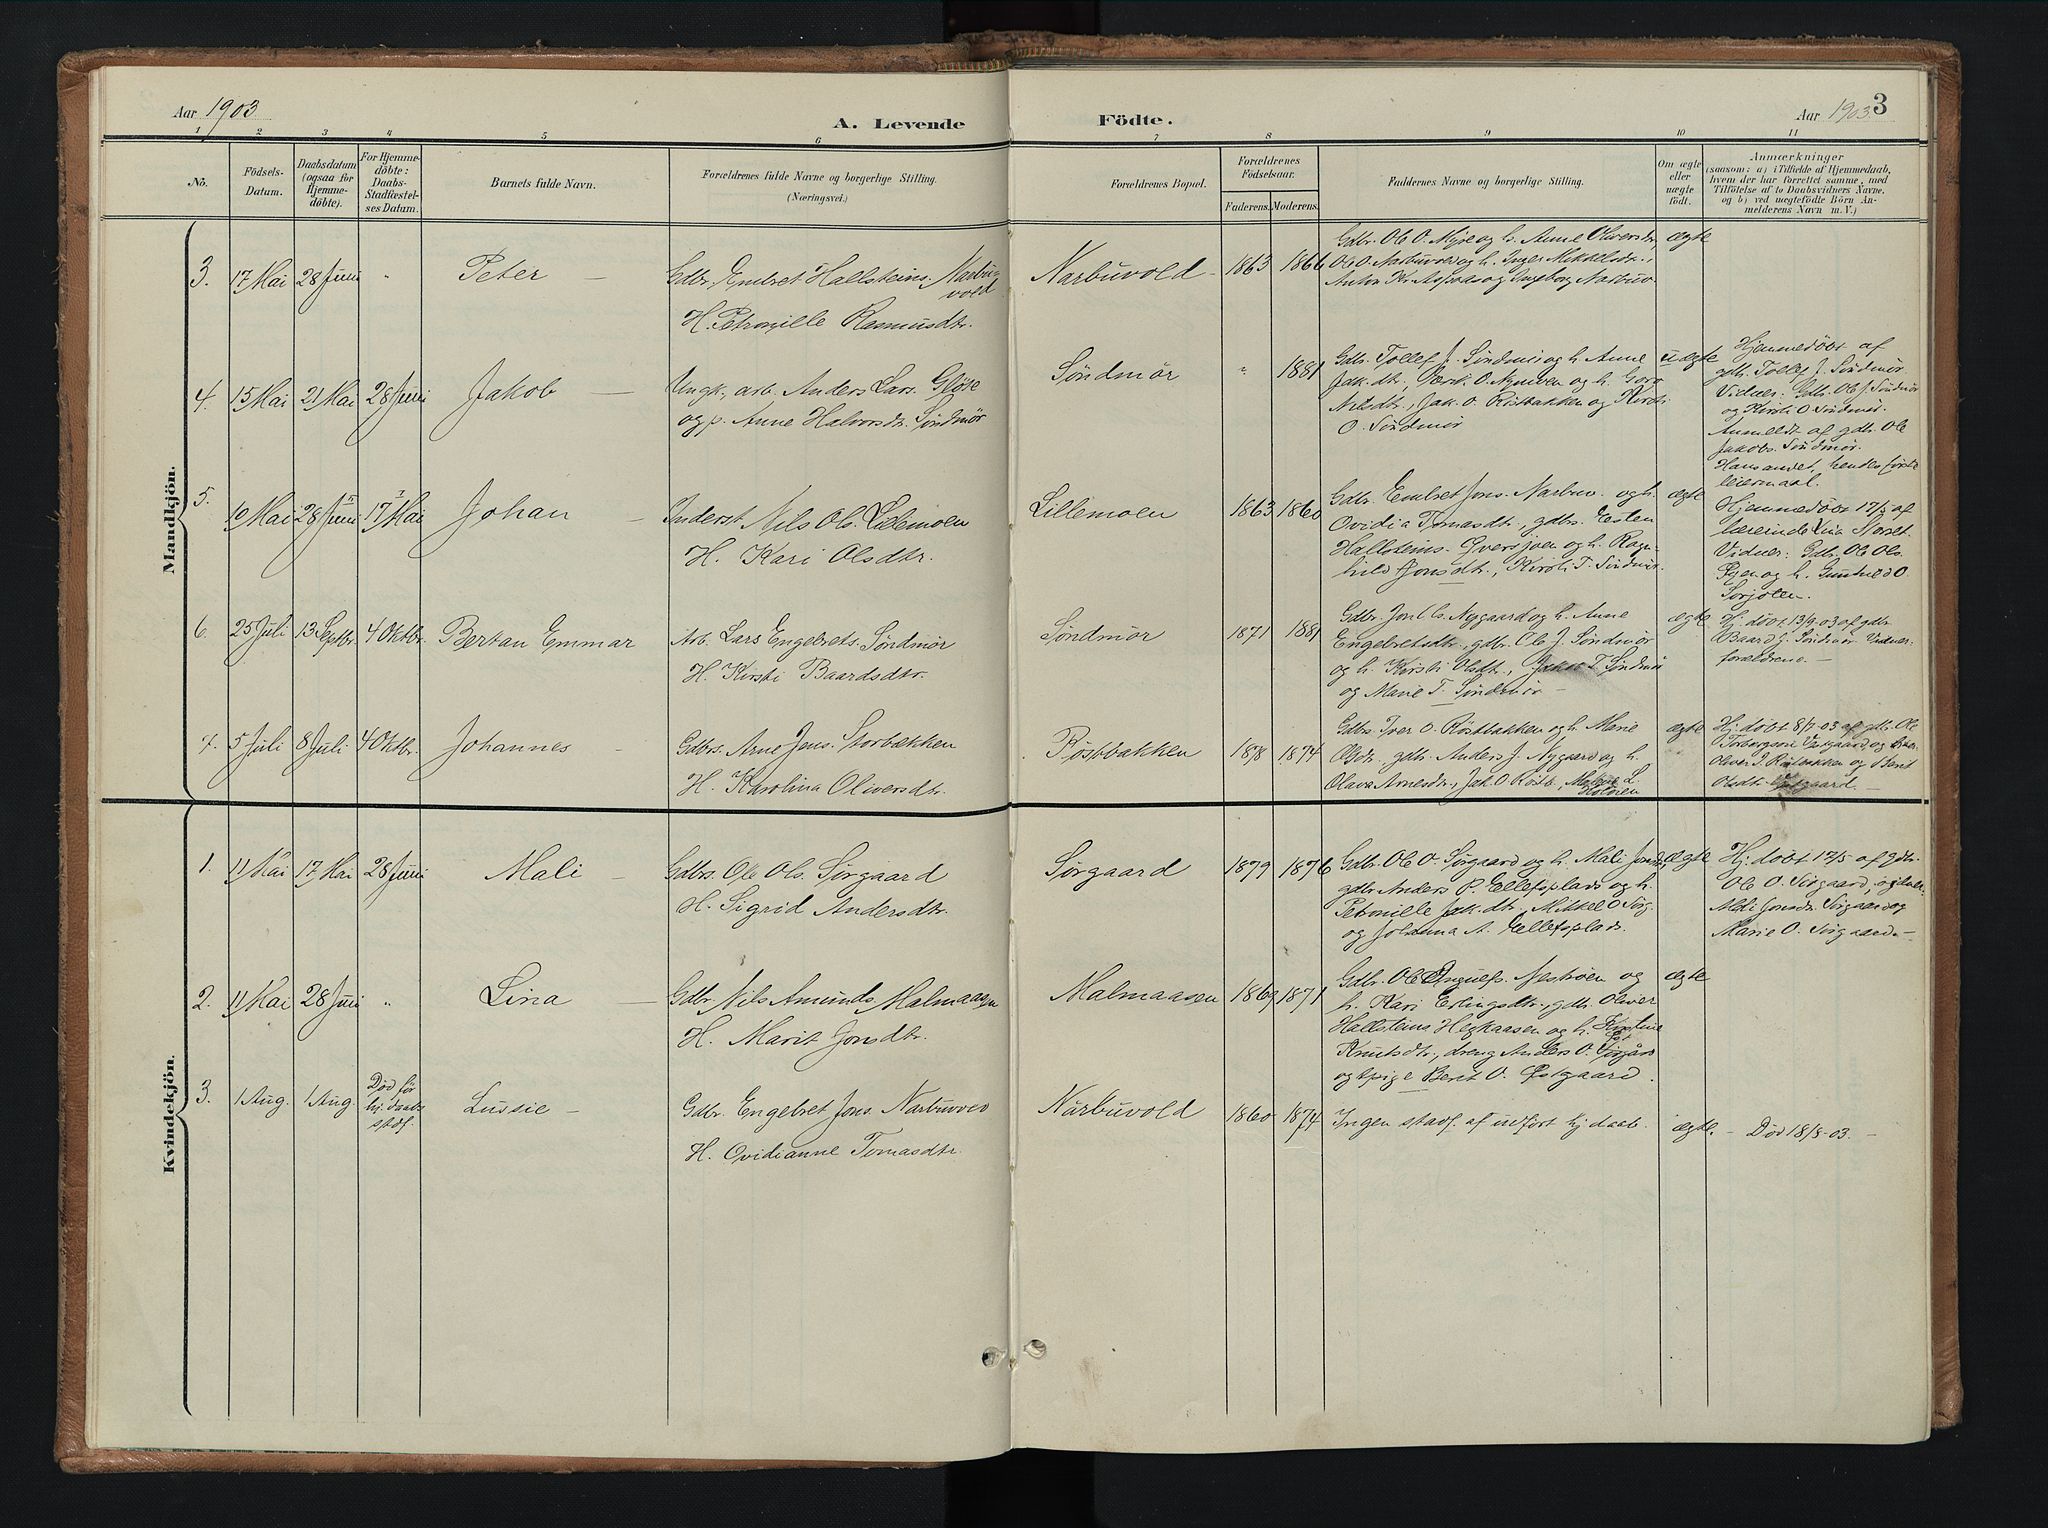 Aar 1903
A. Levende
Födte.
Aar 1903
3
1 2 3 4 5 6 7 8 9 10 11
No.
Födsels-
Datum.
Daabsdatum
(ogsaa for
Hjemme-
döbte).
For Hjemme-
döbte:
Daabs-
Stadfæstel-
ses Datum.
Barnets fulde Navn.
Forældrenes fulde Navne og borgerlige Stilling.
(Næringsvei.)
Forældrenes Bopæl.
Forældrenes
Födselsaar.
Faderens. Moderens.
Faddernes Navne og borgerlige Stilling.
Om ægte
eller
uægte
födt.
Anmærkninger
(saasom: a) i Tilfælde af Hjemmedaab,
hvem der har forrettet samme, med
Tilföielse af to Daabsvidners Navne,
og b) ved uægtefödte Börn An-
melderens Navn m. V.)
Mandkjön.
3. 17 Mai 28 Juni " Peter —
Gdbr. Embret Hallsteins. Narbu-
vold
H. Petronille Rasmusdtr.
Narbuvold 1863 1866
Gdbr. Ole O. Myre og h. Anne Oliversdtr,
Ole O. Narbuvold og h. Inger Mikkelsdtr.,
Anton Kr. Aspaas og Ingeborg Narbuv.
ægte
4. 15 Mai 21 Mai 28 Juni Jakob —
Ungk., arb. Anders Lars. Gløse
og p. Anne Halvorsdtr. Søndmör
Søndmör " 1881
Gdbr. Tollef J. Søndmör og h. Anne
Jak.dtr., Perik. O. Nymoen og h. Goro
Nilsdtr., Jak. O. Röstbakken og Kirsti
O. Søndmör
uægte
Hjemmedøbt af
gdbr. Tollef J. Søndmör
Vidner: Gdbr. Ole J. Søndmör
og Kirsti O. Søndmör.
Anmeldt af gdbr. Ole
Jakobs. Søndmör.
Hans andet, hendes første
leiermaal.
5. 10 Mai 28 Juni 17 Mai Johan —
Inderst Nils Ols. Lillemoen
H. Kari Olsdtr.
Lillemoen 1863 1860
Gdbr. Embret Jons. Narbuv. og h.
Ovidia Tomasdtr., gdbr. Esten
Hallsteins. Oversjoen og h. Ragn-
hild Jonsdtr., Kirsti T. Søndmör.
ægte
Hjemmedøbt 17/5 af
lærerinde Lina Storst.
Vidner: Gdbr. Ole Ols.
Moen og h. Gunhild O.
6. 25 Juli 13 Septbr. 4 Oktbr. Bertan Emmar
Arb. Lars Engebrets. Søndmör
H. Kirsti Baardsdtr.
Søndmör 1871 1881
Gdbr. Jon L. Nygaard og h. Anne
Engebretsdtr., gdbr. Ole J. Søndmör
og h. Kirsti Olsdtr., Jakob T. Søndmör
og Marie T. Søndmör —
ægte
Hj. døbt 13/9 03 af gdbr.
Baard J. Søndmör. Vidner:
forældrene. —
7. 5 Juli 8 Juli 4 Oktbr. Johannes —
Gdbrs. Arne Jens. Storbækken
H. Karolina Oliversdtr.
Röstbakken 1878 1874
Gdbr. Iver O. Röstbakken og h. Marie
Olsdtr. gdbr. Anders J. Nygaard og h.
Olava Arnesdtr., Jak. O. Röstb.,
ægte
Hj. døbt 8/7-03 af gdbr. Ole
Torbergsen Østgaard, og
Oliver I. Röstbakken og Berit
Olsdtr. Østgaard. —
Kvindekjön.
1. 11 Mai 17 Mai 28 Juni Mali —
Gdbrs. Ole Ols. Sørgaard
H. Sigrid Andersdtr.
Sørgaard 1879 1876
Gdbr. Ole O. Sørgaard og h. Mali Jonsdtr,
gdbr. Anders P. Ellefsplads og h.
Petonille Jak.dtr., Mikkel O. Sørg.
og Johanna A. Ellefsplads.
ægte
Hj. døbt 17/5 af gdbr.
Ole O. Sørgaard, vidner:
Mali Jonsdtr. Sørgaard og
Marie O. Sørgaard. —
2. 11 Mai 28 Juni " Lina —
Gdbr. Nils Amunds. Malmaasen
H. Marit Jonsdtr.
Malmaasen 1869 1871
Gdbr. Ole Ingulfs. Neströen og
h. Kari Erlingsdtr., gdbr. Oliver
Hallsteins Hegkaasen og h. Kirstine
Knutsdtr., dreng Anders O.
og pige Berit O. Østgaard.
ægte
3. 1 Aug. 1 Aug. Død før
hj. daabs
stadf.
Lussie —
Gdbr. Engebret Jons. Narbuvold
H. Ovidianne Tomasdtr.
Narbuvold 1860 1874
Ingen stadf. af udført hj. daab.
ægte. — Død 18/8-03. —